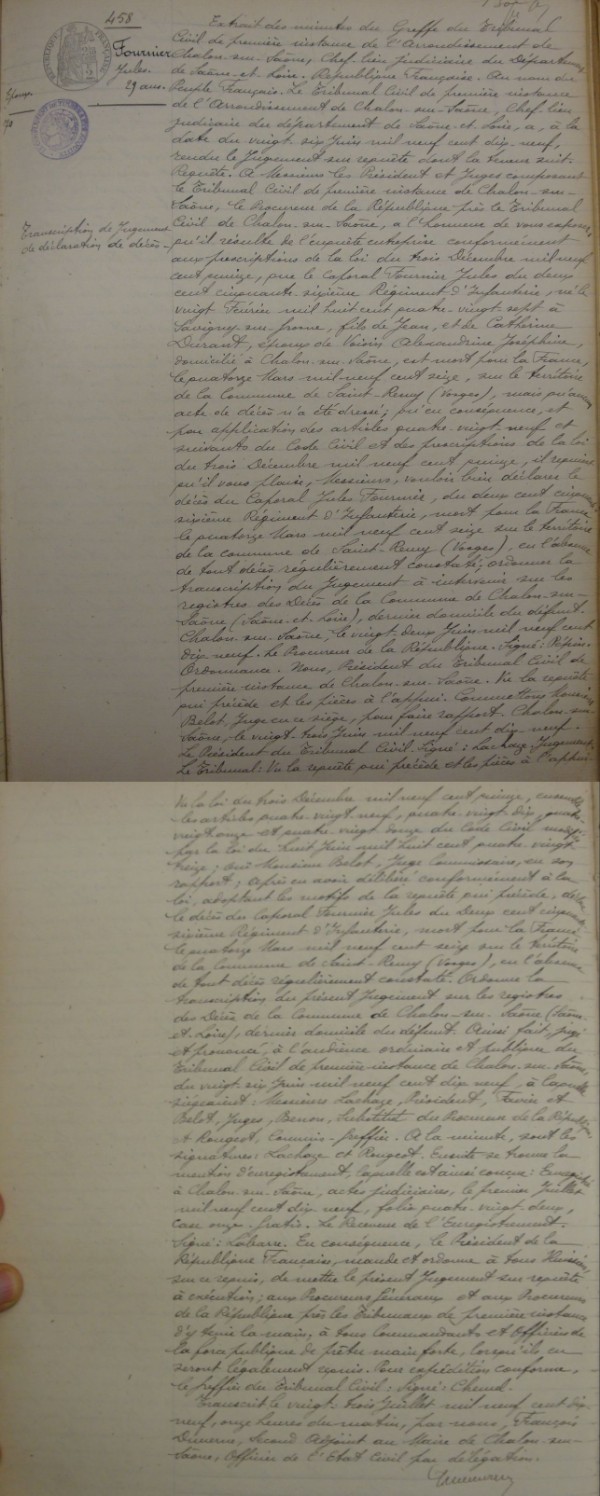 458
Fournier
Jules.
29 ans.
Transcription de Jugement
de déclaration de décès.
Extrait des minutes du Greffe du Tribunal
Civil de première instance de l'Arrondissement de
Chalon-sur-Saône, Chef-lieu judiciaire du Département
de Saône-et-Loire. République Française. Au nom du
Peuple Français. Le Tribunal Civil de première instance
de l'Arrondissement de Chalon-sur-Saône, Chef-lieu
judiciaire du département de Saône-et-Loire, a, à la
date du vingt-six Juin mil neuf cent dix-neuf,
rendu le Jugement sur requête dont la teneur suit.
Requête. A Messieurs les Président et Juges composant
le Tribunal Civil de première instance de Chalon-sur-
Saône, le Procureur de la République près le Tribunal
Civil de Chalon-sur-Saône, a l'honneur de vous exposer
qu'il résulte de l'enquête entreprise conformément
aux prescriptions de la loi du trois Décembre mil neuf
cent quinze, que le caporal Fournier Jules du deux
cent cinquante-sixième Régiment d'Infanterie, né le
vingt Février mil huit cent quatre-vingt-sept à
Savigny-sur-Grosne, fils de Jean, et de Catherine
Durant, époux de Voisin Alexandrine Joséphine,
domicilié à Chalon-sur-Saône, est mort pour la France,
le quatorze Mars mil neuf cent seize, sur le territoire
de la Commune de Saint-Remy (Vosges), mais qu'aucun
acte de décès n'a été dressé; qu'en conséquence, et
par application des articles quatre-vingt-neuf et
suivants du Code Civil et des prescriptions de la loi
du trois Décembre mil neuf cent quinze, il requiert
qu'il vous plaise, Messieurs, vouloir bien déclarer le
décès du Caporal Jules Fournier, du deux cent cinquante
sixième Régiment d'Infanterie, mort pour la France
le quatorze Mars mil neuf cent seize sur le territoire
de la commune de Saint-Remy (Vosges), en l'absence
de tout décès régulièrement constaté; ordonner la
transcription du Jugement à intervenir sur les
registres des Décès de la Commune de Chalon-sur-
Saône (Saône-et-Loire), dernier domicile du défunt.
Chalon-sur-Saône, le vingt-deux Juin mil neuf cent
dix-neuf. Le Procureur de la République. Signé:
Ordonnance. Nous, Président du Tribunal Civil de
première instance de Chalon-sur-Saône. Vu la requête
qui précède et les pièces à l'appui. Commettons Monsieur
Belot, Juge en ce siège, pour faire rapport. Chalon-sur-
Saône, le vingt-trois Juin mil neuf cent dix-neuf.
Le Président du Tribunal Civil. Signé: Lachaze. Jugement.
Le Tribunal: Vu la requête qui précède et les pièces à l'appui.
Vu la loi du trois Décembre mil neuf cent quinze, ensemble
les articles quatre-vingt-neuf, quatre-vingt-dix, quatre-
vingt-onze et quatre-vingt-douze du Code Civil
par la loi du huit Juin mil huit cent quatre-vingt-
treize; ouï Monsieur Belot, Juge Commissaire, en son
rapport; Après en avoir délibéré conformément à la
loi, adoptant les motifs de la requête qui précède,
le décès du Caporal Fournier Jules du Deux cent cinquante
sixième Régiment d'Infanterie, mort pour la France
le quatorze Mars mil neuf cent seize sur le territoire
de la Commune de Saint-Remy (Vosges), en l'absence
de tout décès régulièrement constaté. Ordonne la
transcription du présent Jugement sur les registres
des Décès de la Commune de Chalon-sur-Saône (Saône-
et-Loire), dernier domicile du défunt. Ainsi fait, jugé
et prononcé, à l'audience ordinaire et publique du
Tribunal Civil de première instance de Chalon-sur-Saône,
du vingt-six Juin mil neuf cent dix-neuf, à laquelle
siégeaient: Messieurs Lachaze, Président, et
Belot, Juges, Benon, Substitut du Procureur de la République
et Rougeot, Commis-greffier. A la minute, sont les
signatures: Lachaze et Rougeot. Ensuite se trouve la
mention d'enregistrement, laquelle est ainsi conçue: Enregistré
à Chalon-sur-Saône, actes judiciaires, le premier Juillet
mil neuf cent dix-neuf, folio quatre-vingt-deux,
case onze. Gratis. Le Receveur de l'Enregistrement.
Signé: Labarre. En conséquence, le Président de la
République Française, mande et ordonne à tous Huissiers,
sur ce requis, de mettre le présent Jugement sur requête
à exécution; aux Procureurs Généraux et aux Procureurs
de la République près les Tribunaux de première instance
d'y tenir la main, à tous Commandants et Officiers de
la force publique de prêter main forte, lorsqu'ils en
seront légalement requis. Pour expédition conforme,
le greffier du Tribunal Civil: Signé:
Transcrit le vingt-trois Juillet mil neuf cent dix-
neuf, onze heures du matin, par nous, François
Second Adjoint au Maire de Chalon-sur-
Saône, Officier de l'Etat Civil par délégation.